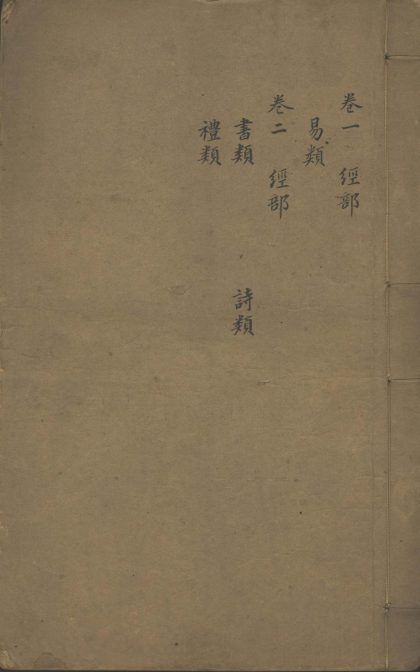 卷一 經部
易類
卷二 經部
書類 詩類
禮類